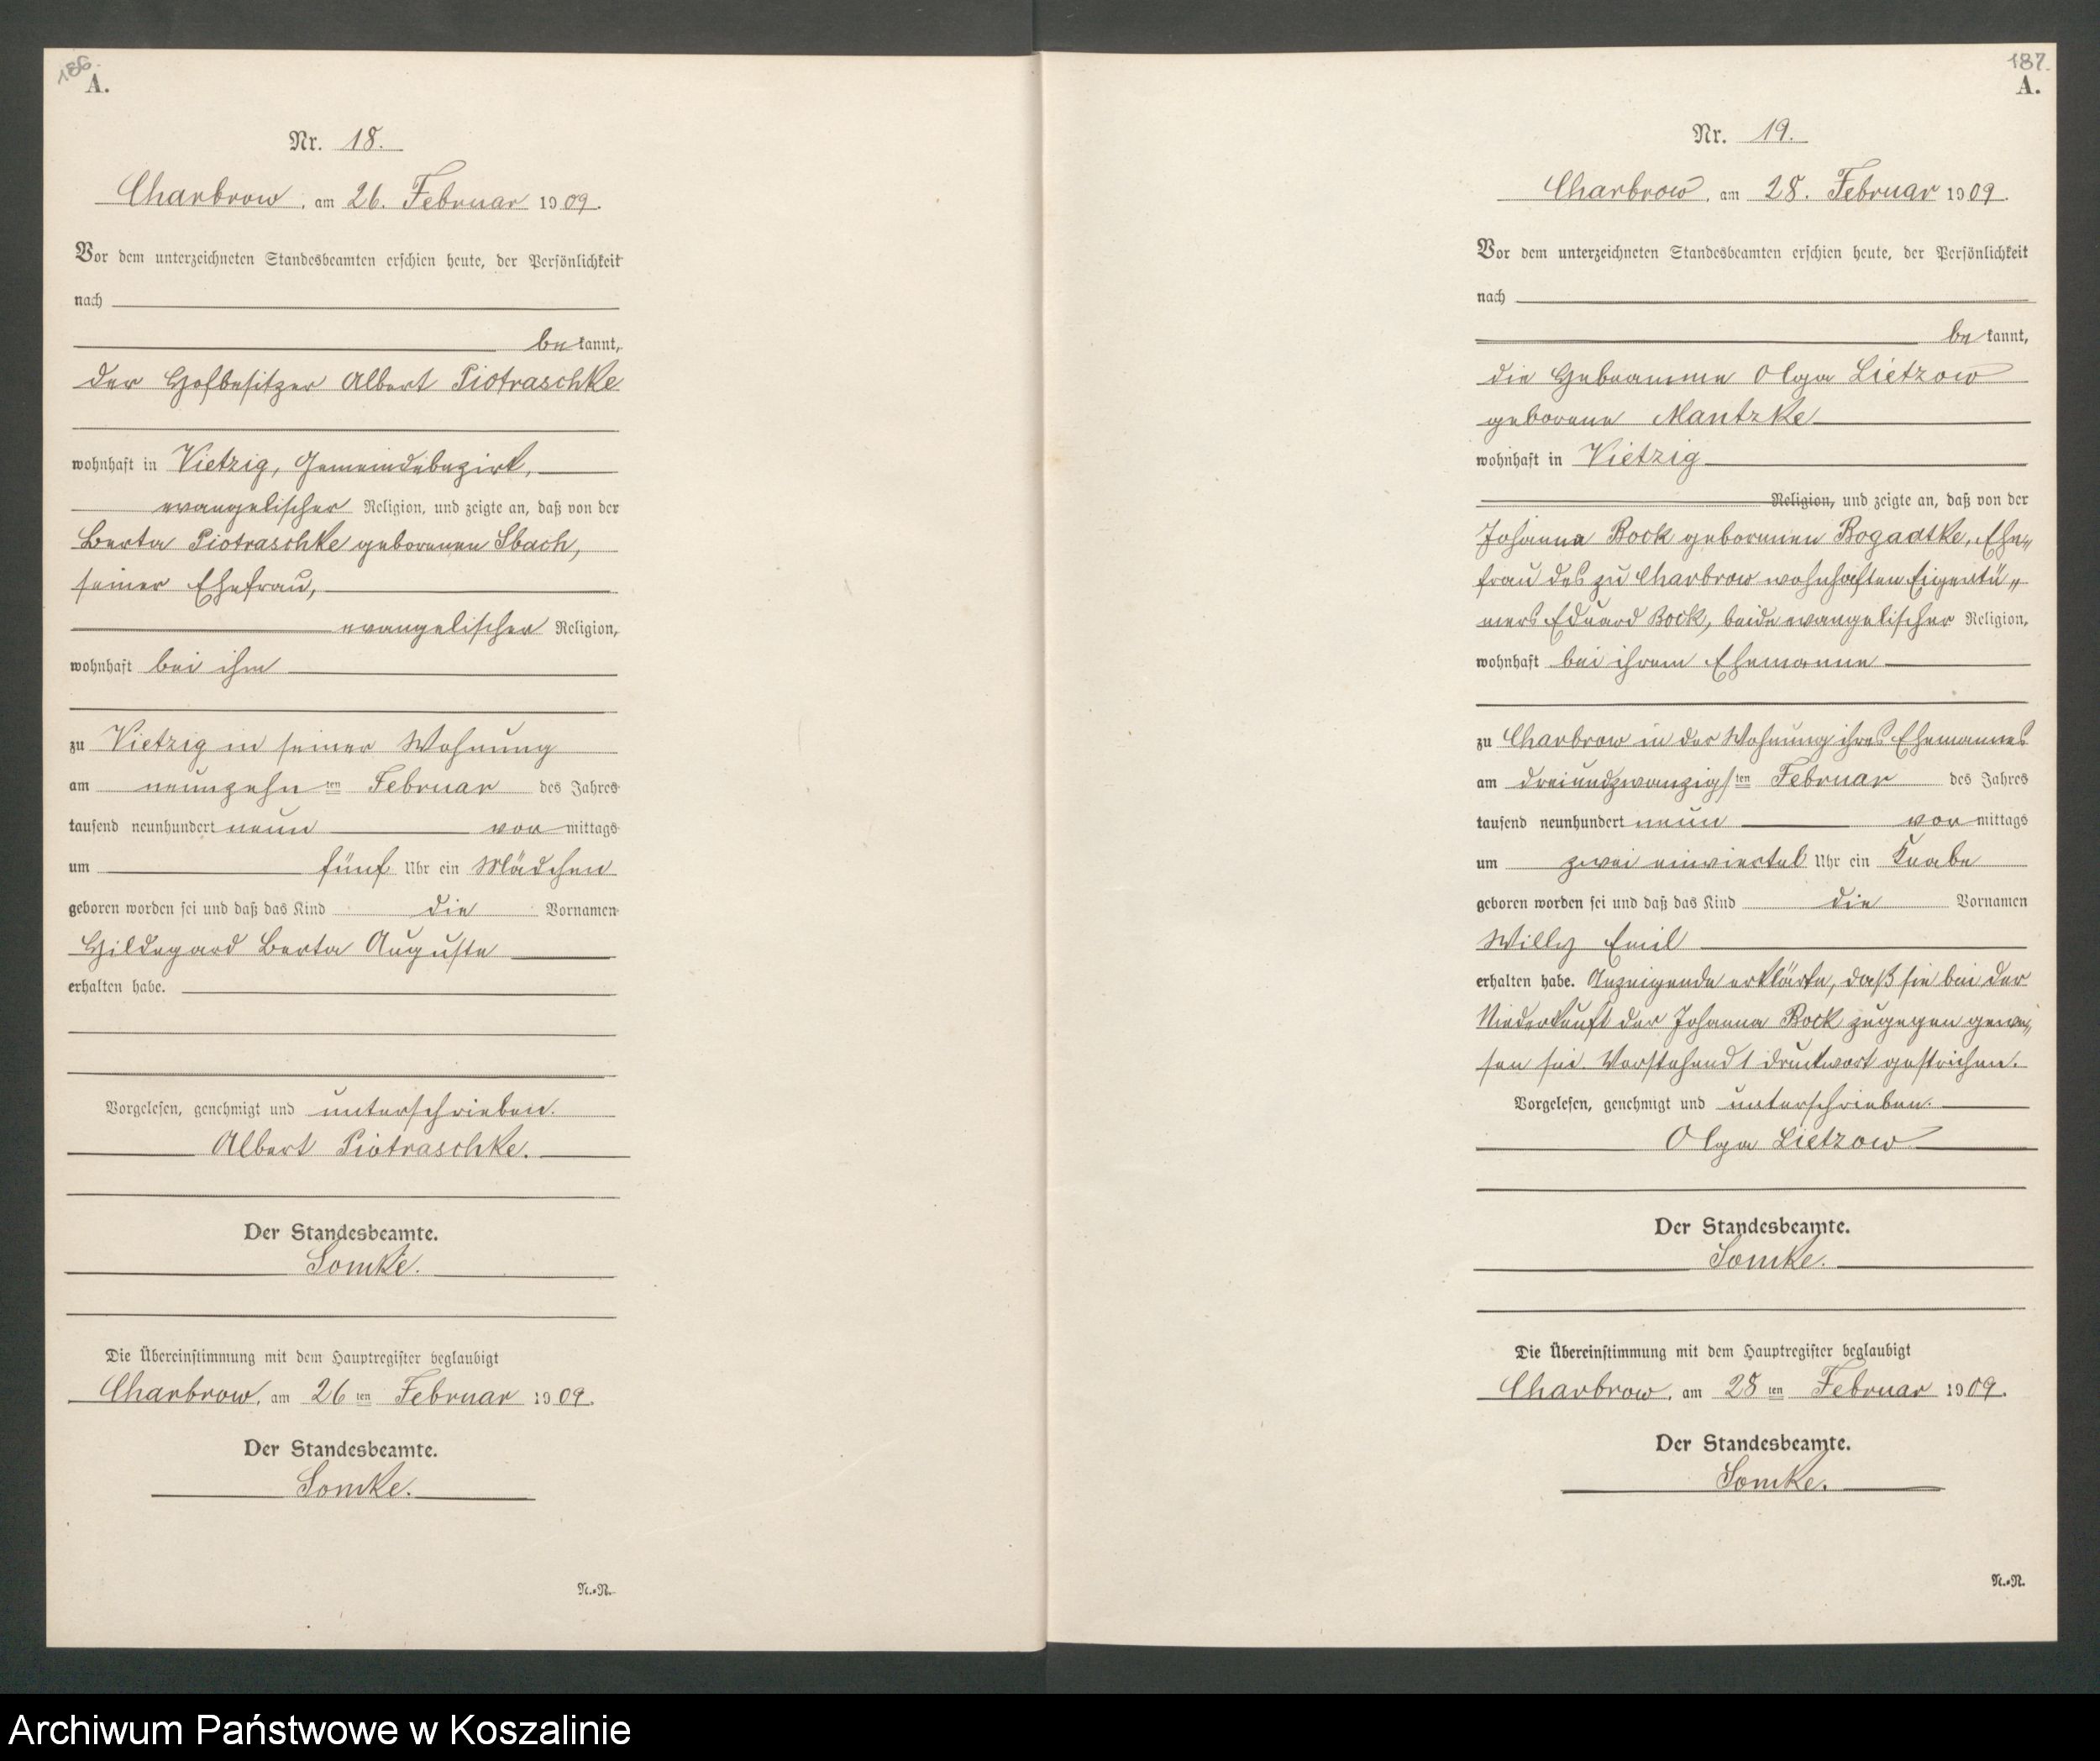 186.
A.
Nr. 18.
Charbrow, am 26. Februar 1909.
Vor dem unterzeichneten Standesbeamten erschien heute, der Persönlichkeit
nach
bekannt,
der Hofbesitzer Albert Piotraschke
wohnhaft in Vietzig, Gemeindebezirk,
evangelischer Religion, und zeigte an, daß von der
Berta Piotraschke geborenen Sbach,
seiner Ehefrau,
evangelischer Religion,
wohnhaft bei ihm
zu Vietzig in seiner Wohnung
am neunzehnten Februar des Jahres
tausend neunhundert neun vormittags
um fünf Uhr ein Mädchen
geboren worden sei und daß das Kind die Vornamen
Hildegard Berta Auguste
erhalten habe.
Vorgelesen, genehmigt und unterschrieben.
Albert Piotraschke.
Der Standesbeamte.
Somke.
Die Übereinstimmung mit dem Hauptregister beglaubigt
Charbrow, am 26ten Februar 1909.
Der Standesbeamte.
Somke.
N.=R.
187.
A.
Nr. 19.
Charbrow, am 28. Februar 1909.
Vor dem unterzeichneten Standesbeamten erschien heute, der Persönlichkeit
nach
bekannt,
die Hebeamme Olga Lietzow
geborene Mantzke
wohnhaft in Vietzig
Religion, und zeigte an, daß von der
Johanna Bock geborenen Rogadtke, Ehe„
frau des zu Charbrow wohnhaften Eigentü„
mers Eduard Bock, beide evangelischer Religion,
wohnhaft bei ihrem Ehemanne
zu Charbrow in der Wohnung ihres Ehemannes
am dreiundzwanzigsten Februar des Jahres
tausend neunhundert neun vormittags
um zwei einviertel Uhr ein Knabe
geboren worden sei und daß das Kind die Vornamen
Willy Emil
erhalten habe. Anzeigende erklärte, daß sie bei der
Niederkunft der Johanna Bock zugegen gewe„
sen sei. Vorstehend 1 Druckwort gestrichen.
Vorgelesen, genehmigt und unterschrieben.
Olga Lietzow
Der Standesbeamte.
Somke.
Die Übereinstimmung mit dem Hauptregister beglaubigt
Charbrow, am 28ten Februar 1909.
Der Standesbeamte.
Somke.
N.=R.
Archiwum Państwowe w Koszalinie